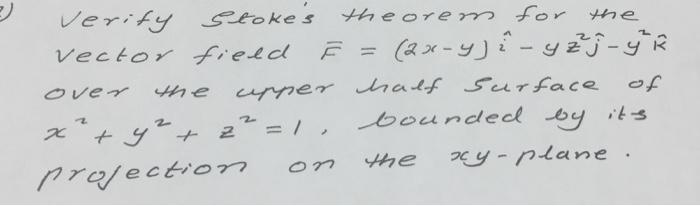 ) Verify Stoke's theorem for the
vector field F̄ = (2x-y) î - yz²ĵ - y²k̂
over the upper half surface of
x² + y² + z² = 1, bounded by its
projection on the xy-plane.